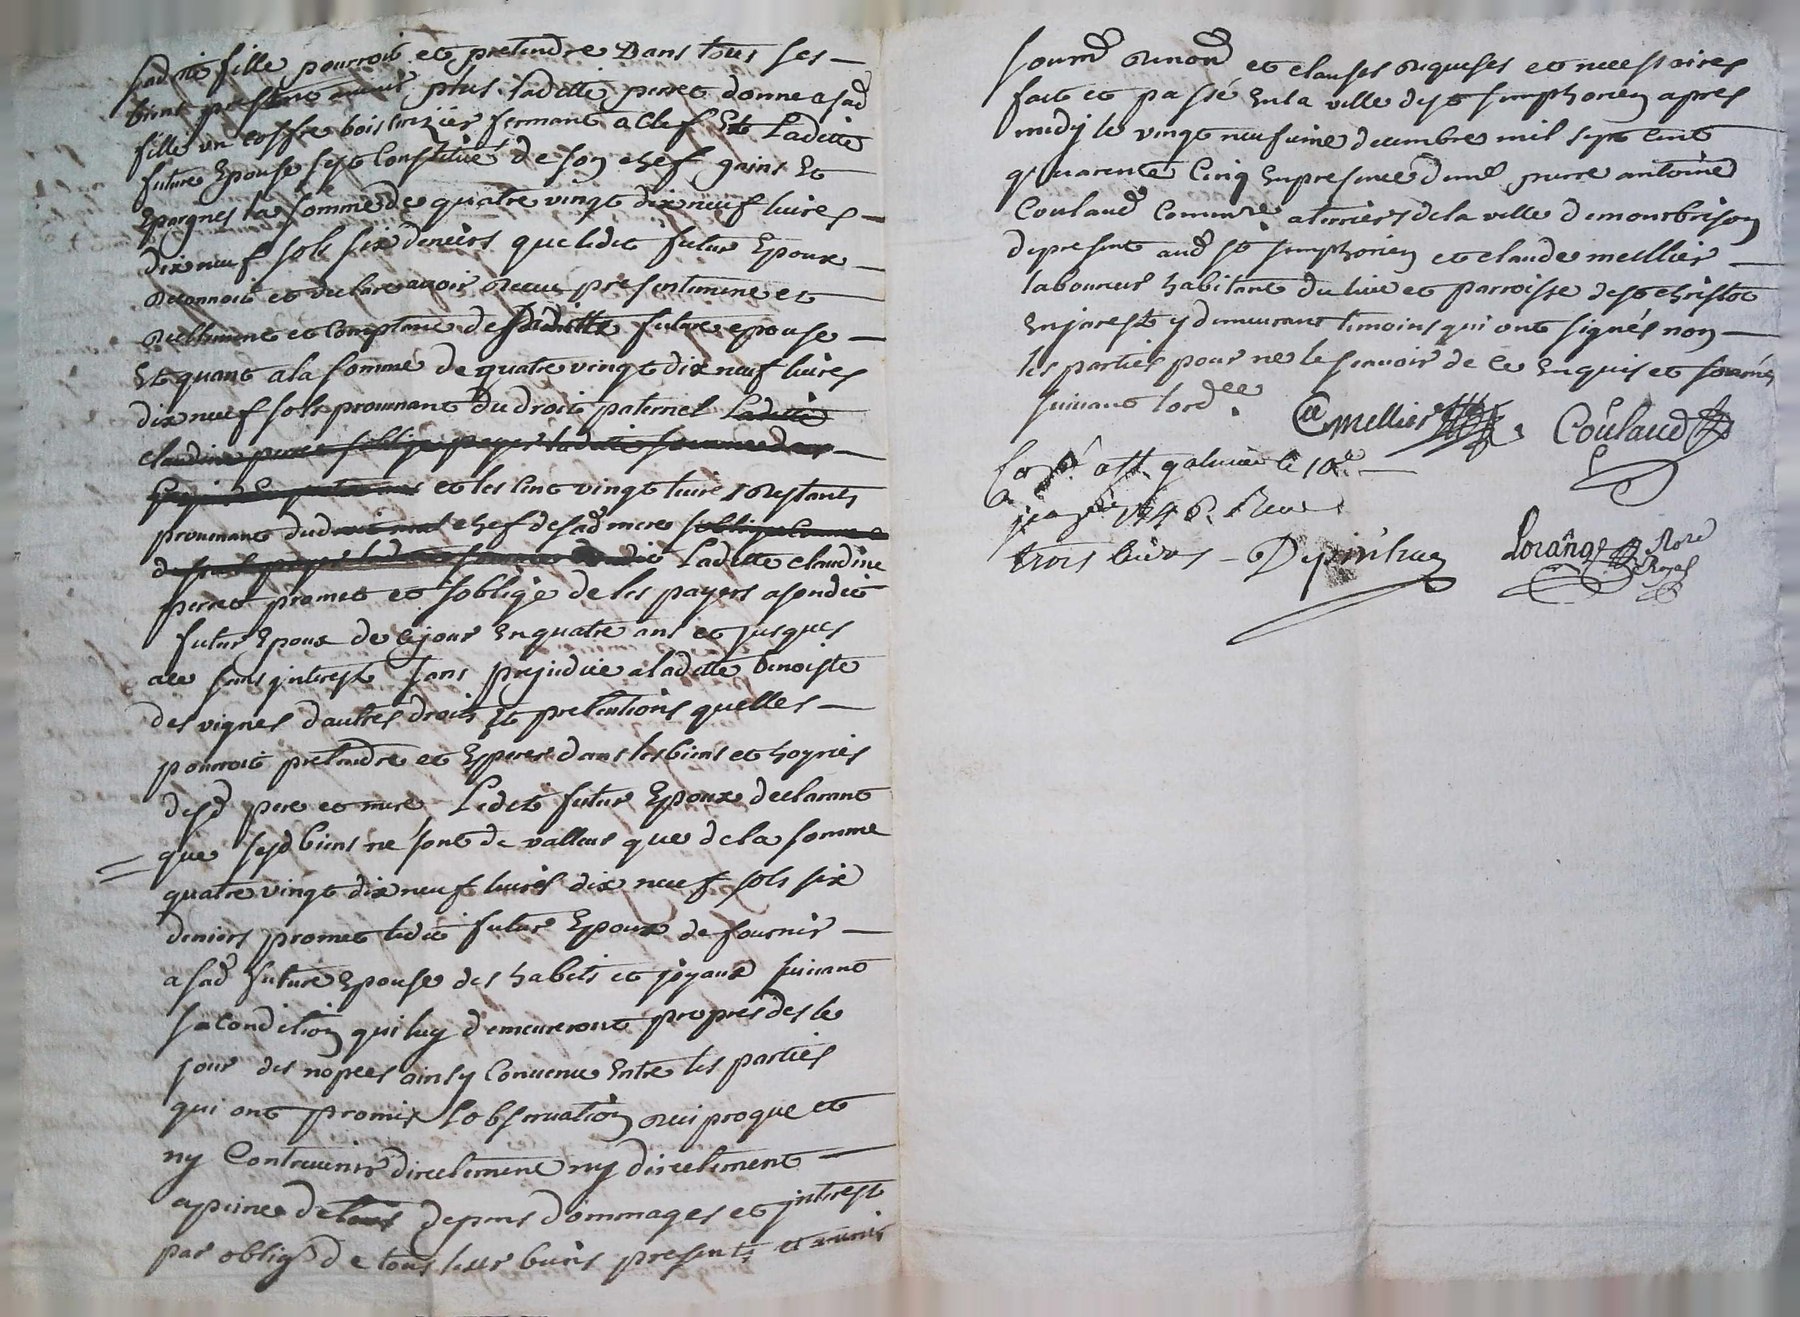 sadite fille pourroit et pretendre Dans tous ses
biens presant avenir plus ladite perret donne a sad
fille un coffre bois serizier fermant a clef Et Ladite
future Epouse sest Constitué de son chef gains Et
Epargnes la somme de quatre vingt dix neuf livres
dix neuf sols six deniers que ledit futur Epoux
reconnoit et declare avoir receu presentement et
réellement et Comptant de Ladite future epouse
Et quant a la somme de quatre vingt dix neuf livres
dix neuf sols provenant du droit paternel Ladite
claudine perret soblige payer ladite somme dans
et les cent vingt livres restants
provenant du chef de sad mere soblige comme
de payer ladite somme Ladite claudine
perret promet et soblige de les payer a sondit
futur Epoux de ce jour En quatre ans et jusques
a ce sans interest sans prejudice a ladite benoiste
des vignes dautres droits Et pretentions quelles
pourroit pretendre et Esperer dans les biens et hoyries
desd pere et mere Ledit futur Epoux declarant
que sesd biens ne sont de valleur que de la somme
quatre vingt dix neuf livres dix neuf sols six
deniers promet ledit futur Epoux de fournir
a sad future Epouse des habits et joyaux suivant
sa condition qui luy demeureront propres des le
jour des nopces ainsy Convenu Entre les parties
qui ont promis Lobservation reciproque et
ny Contrevenir directement ny directement
a peine de tous depens dommages et interest
par oblig de tous leur biens presents et avenir
soum renon et clauses requises et necessaires
fait et passé En la ville de st simphorien apres
midy le vingt neufieme decembre mil sept cent
quarente Cinq En presence de me pierre antoine
Couland Commre a terriers de la ville de monbrison
de present aud st simphorien et claude mellier
laboureur habitant du lieu et parroisse de st christot
En jarest y demeurant temoins qui ont signés non
les parties pour ne le scavoir de ce Enquis et sommés
suivant lord ce
C mellier Couland
a st galmier le 10e
1746. Receu
trois livres
Lorange Nore
Royal